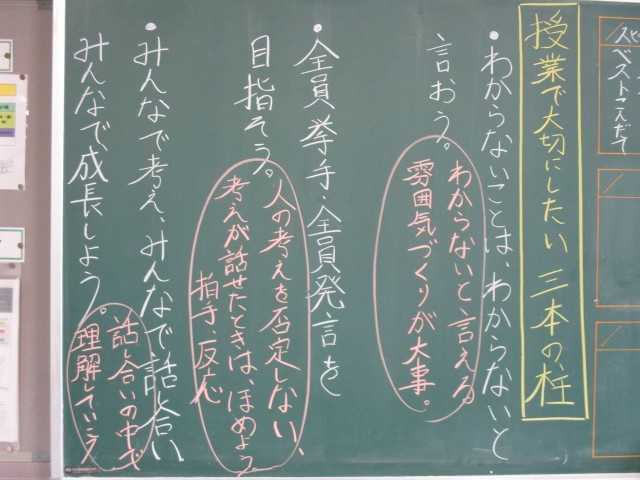 スピ
ベストこんだて
授業で大切にしたい 三本の柱
・わからないことは、わからないと
言おう。
わからないと言える
雰囲気づくりが大事。
・全員挙手・全員発言を
目指そう。
人の考えを否定しない、
考えが話せたときは、ほめよう。
拍手、反応
・みんなで考え、みんなで話し合い
みんなで成長しよう。
話し合いの中で
理解していこう